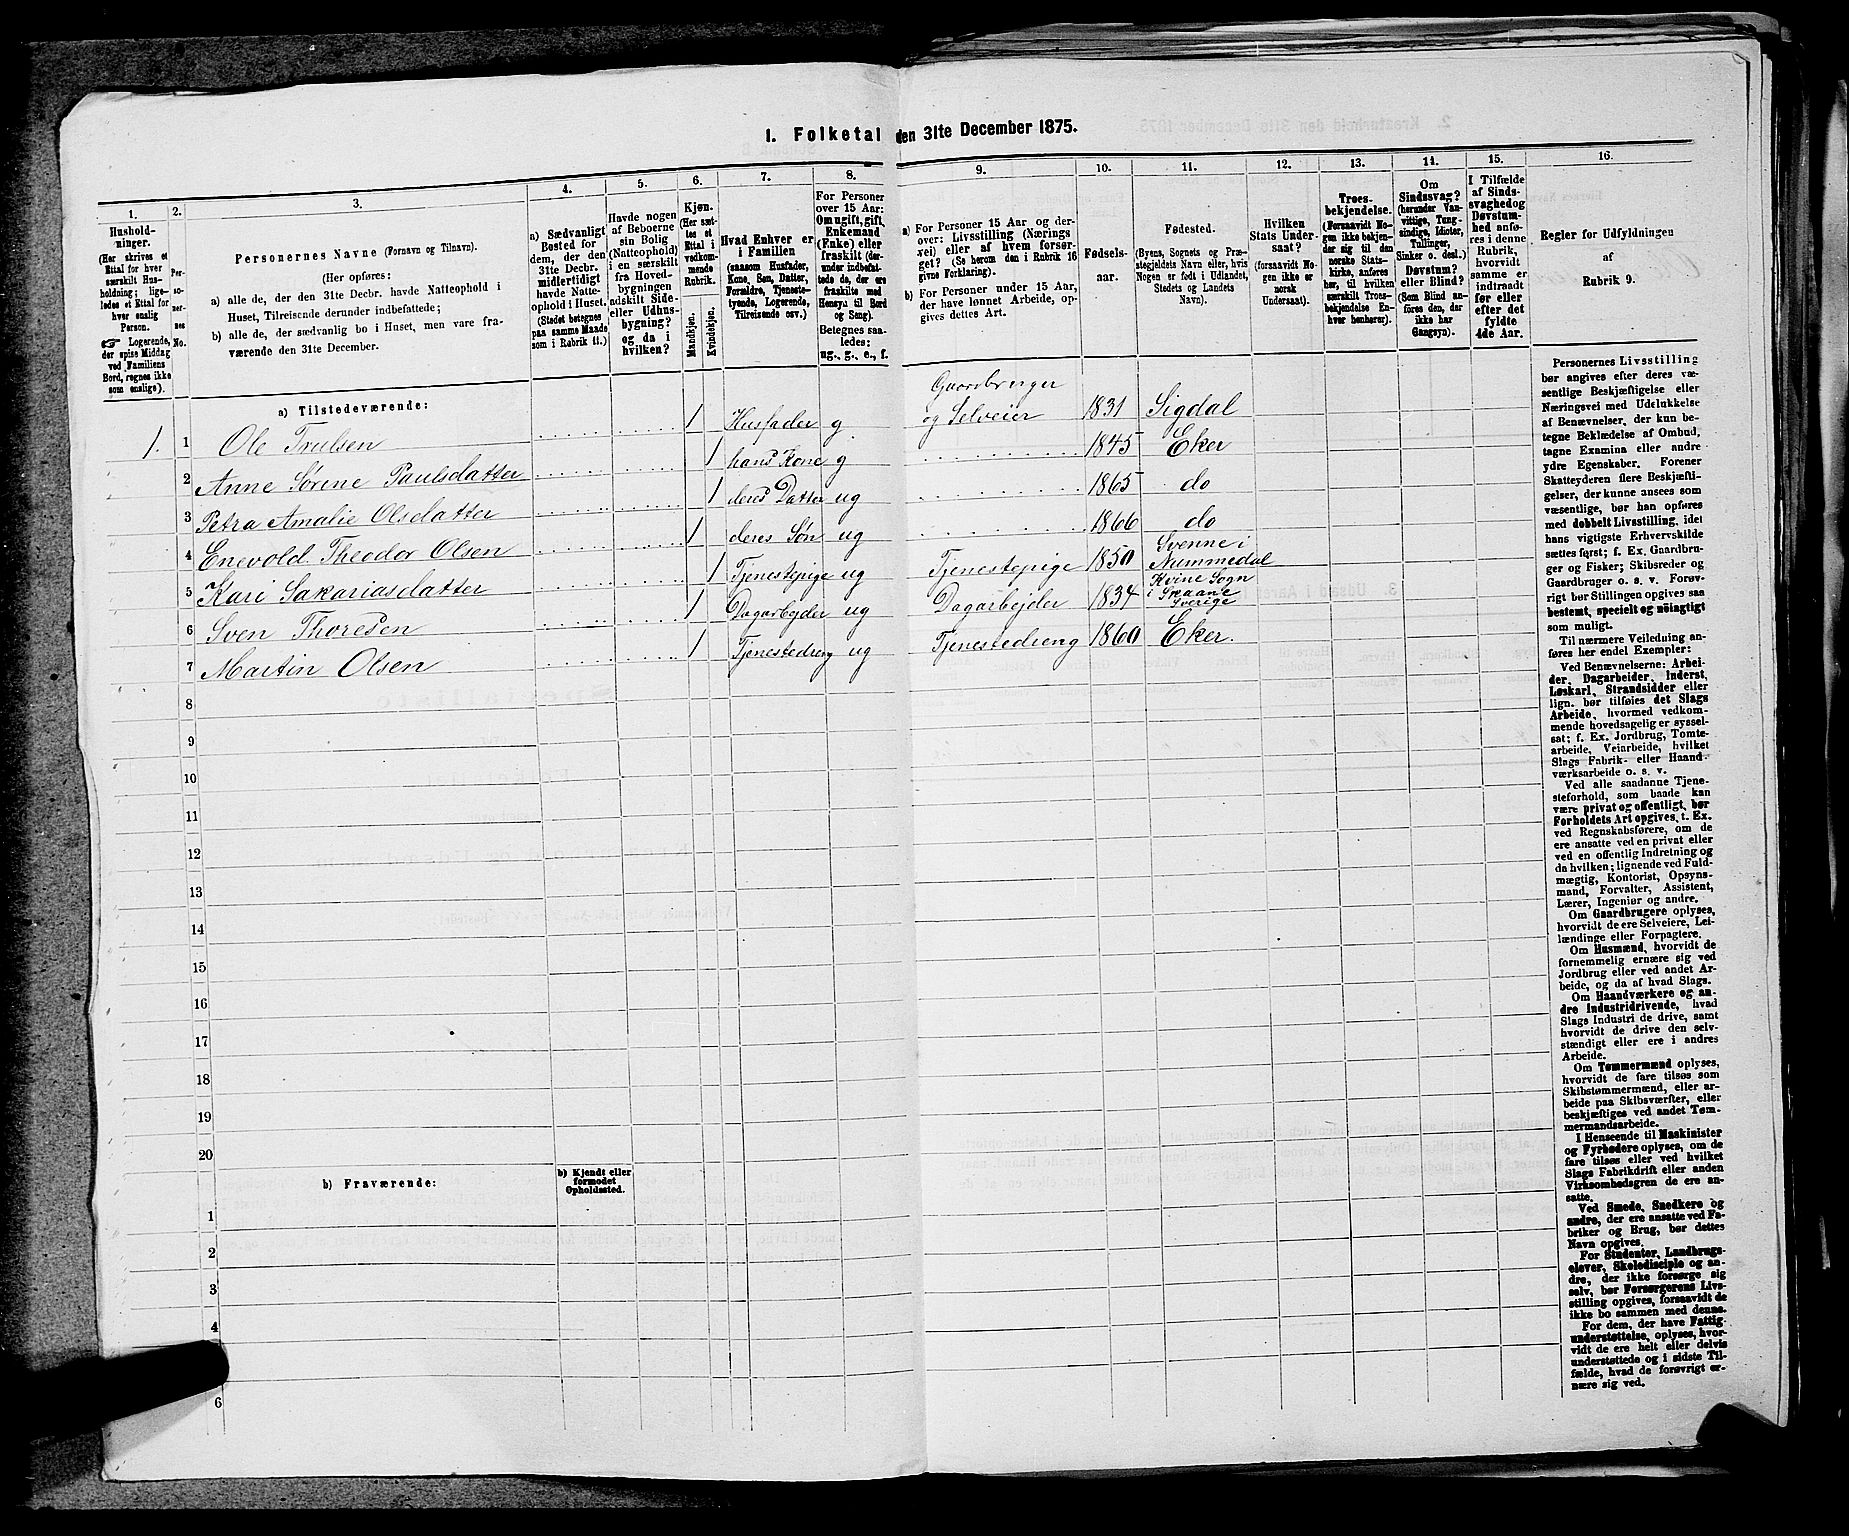 1. Folketal den 31te December 1875.
1. 2. 3. 4. 5. 6. 7. 8. 9. 10. 11. 12. 13. 14. 15. 16.
Hushold-
ninger.
(Her skrives et
Ettal for hver
særskilt Hus-
holdning; lige-
ledes et Ettal for
hver enslig
Person.
☞ Logerende,
der spise Middag
ved Familiens
Bord, regnes ikke
som enslige).
Per-
so-
ner-
nes
No.
Personernes Navne (Fornavn og Tilnavn).
(Her opføres:
a) alle de, der den 31te Decbr. havde Natteophold i
Huset, Tilreisende derunder indbefattede;
b) alle de, der sædvanlig bo i Huset, men vare fra-
værende den 31te December.
a) Sædvanligt
Bosted for
dem, der den
31te Decbr.
midlertidigt
havde Natte-
ophold i Huset.
(Stedet betegnes
paa samme Maade
som i Rubrik 11.)
Havde nogen
af Beboerne
sin Bolig
(Natteophold)
i en særskilt
fra Hoved-
bygningen
adskilt Side-
eller Udhus-
bygning?
og da i
hvilken?
Kjøn.
(Her sæt-
tes et
Ettal i
vedkom-
mende
Rubrik.
Mandkjøn.
Kvindekjøn.
Hvad Enhver er
i Familien
(saasom Husfader,
Kone, Søn, Datter,
Forældre, Tjeneste-
tyende, Logerende,
Tilreisende osv.)
For Personer
over 15 Aar:
Om ugift, gift,
Enkemand
(Enke) eller
fraskilt (der-
under indbefat-
tede de, der ere
fraskilte med
Hensyn til Bord
og Seng).
Betegnes saa-
ledes:
ug., g., e., f.
a) For Personer 15 Aar og der-
over: Livsstilling (Nærings
vei) eller af hvem forsør-
get? (Se herom den i Rubrik 16
givne Forklaring).
b) For Personer under 15 Aar,
der have lønnet Arbeide, op-
gives dettes Art.
Fødsels-
aar.
Fødested.
(Byens, Sognets og Præ-
stegjeldets Navn eller, hvis
Nogen er født i Udlandet,
Stedets og Landets
Navn).
Hvilken
Stats Under-
saat?
(forsaavidt No-
gen ikke er
norsk
Undersaat).
Troes-
bekjendelse.
(Forsaavidt No-
gen ikke bekjen-
der sig til den
norske Stats-
kirke, anføres
her, til hvilken
særskilt Troes-
bekjendelse En-
hver henhører).
Om
Sindssvag?
(herunder Van-
vittige, Tung-
sindige, Idioter,
Tullinger,
Sinker o. desl.)
Døvstum?
eller Blind?
(Som Blind an-
føres den, der
ikke har
Gangsyn).
I Tilfælde
af Sinds-
svaghed og
Døvstum-
hed anfø-
res i denne
Rubrik,
hvorvidt
samme er
indtraadt
før eller
efter det
fyldte
4de Aar.
Regler for Udfyldningen
af
Rubrik 9.
a) Tilstedeværende:
1. 1 Ole Trulsen 1 Husfader g Gaardbruger og Selveier 1831 Sigdal
2 Anne Sørene Paulsdatter 1 hans Kone g 1845 Eker
3 Petra Amalie Olsdatter 1 deres Datter ug 1865 do
4 Enevold Theodor Olsen 1 deres Søn ug 1866 do
5 Kari Sakariasdatter 1 Tjenestepige ug Tjenestepige 1850 Svenne i Nummedal
6 Sven Thoresen 1 Dagarbejder ug Dagarbejder 1834 Sogn i Sverige
7 Martin Olsen 1 Tjenestedreng ug Tjenestedreng 1860 Eker.
8
9
10
11
12
13
14
15
16
17
18
19
20
b) Fraværende:
b) Kjendt eller
formodet
Opholdssted.
1
2
3
4
6
Personernes Livsstilling
bør angives efter deres væ-
sentlige Beskjæftigelse eller
Næringsvei med Udelukkelse
af Benævnelser, der kun be-
tegne Beklædelse af Ombud,
tagne Examina eller andre
ydre Egenskaber. Forener
Skatteyderen flere Beskjæfti-
gelser, der kunne ansees som
væsentlige, bør han opføres
med dobbelt Livsstilling, idet
hans vigtigste Erhvervskilde
sættes først; f. Ex. Gaardbru-
ger og Fisker; Skibsreder og
Gaardbruger o. s. v. Forøv-
rigt bør Stillingen opgives saa
bestemt, specielt og nøiagtigt
som muligt.
Til nærmere Veiledning an-
føres her endel Exempler:
Ved Benævnelserne: Arbei-
der, Dagarbeider, Inderst,
Løskarl, Strandsidder eller
lign. bør tilføies det Slags
Arbeide, hvormed vedkom-
mende hovedsagelig er syssel-
sat; f. Ex. Jordbrug, Tomte-
arbeide, Veiarbeide, hvilket
Slags Fabrik- eller Haand-
værksarbeide o. s. v.
Ved alle saadanne Tjene-
steforhold, som baade kan
være privat og offentligt, bør
Forholdets Art opgives, t. Ex.
ved Regnskabsførere, om de
ere ansatte ved en privat eller
ved en offentlig Indretning og
da hvilken; lignende ved Fuld-
mægtig, Kontorist, Opsyns-
mand, Forvalter, Assistent,
Lærer, Ingeniør og andre.
Om Gaardbrugere oplyses,
hvorvidt de ere Selveiere, Lei-
lændinge eller Forpagtere.
Om Husmænd, hvorvidt de
fornemmelig ernære sig ved
Jordbrug eller ved andet Ar-
beide, og da af hvad Slags.
Om Haandværkere og an-
dre Industridrivende, hvad
Slags Industri de drive, samt
hvorvidt de drive den selv-
stændigt eller ere i andres
Arbeide.
Om Tømmermænd oplyses,
hvorvidt de fare tilsøs som
Skibstømmermænd, eller ar-
beide paa Skibsværfter, eller
beskjæftiges ved andet Tøm-
mermandsarbeide.
I Henseende til Maskinister
og Fyrbødere oplyses, om de
fare tilsøs eller ved hvilket
Slags Fabrikdrift eller anden
Virksomhedsgren de ere an-
satte.
Ved Smede, Snedkere og
andre, der ere ansatte ved Fa-
briker og Brug, bør dettes
Navn opgives.
For Studenter, Landbrugs-
elever, Skoledisciple og an-
dre, der ikke forsørge sig
selv, bør Forsørgerens Livs-
stilling opgives, forsaavidt de
ikke bo sammen med denne.
For dem, der have Fattig-
understøttelse, oplyses, hvor-
vidt de ere helt eller delvis
understøttede og i sidste Til-
fælde, hvad de forøvrigt er-
nære sig ved.